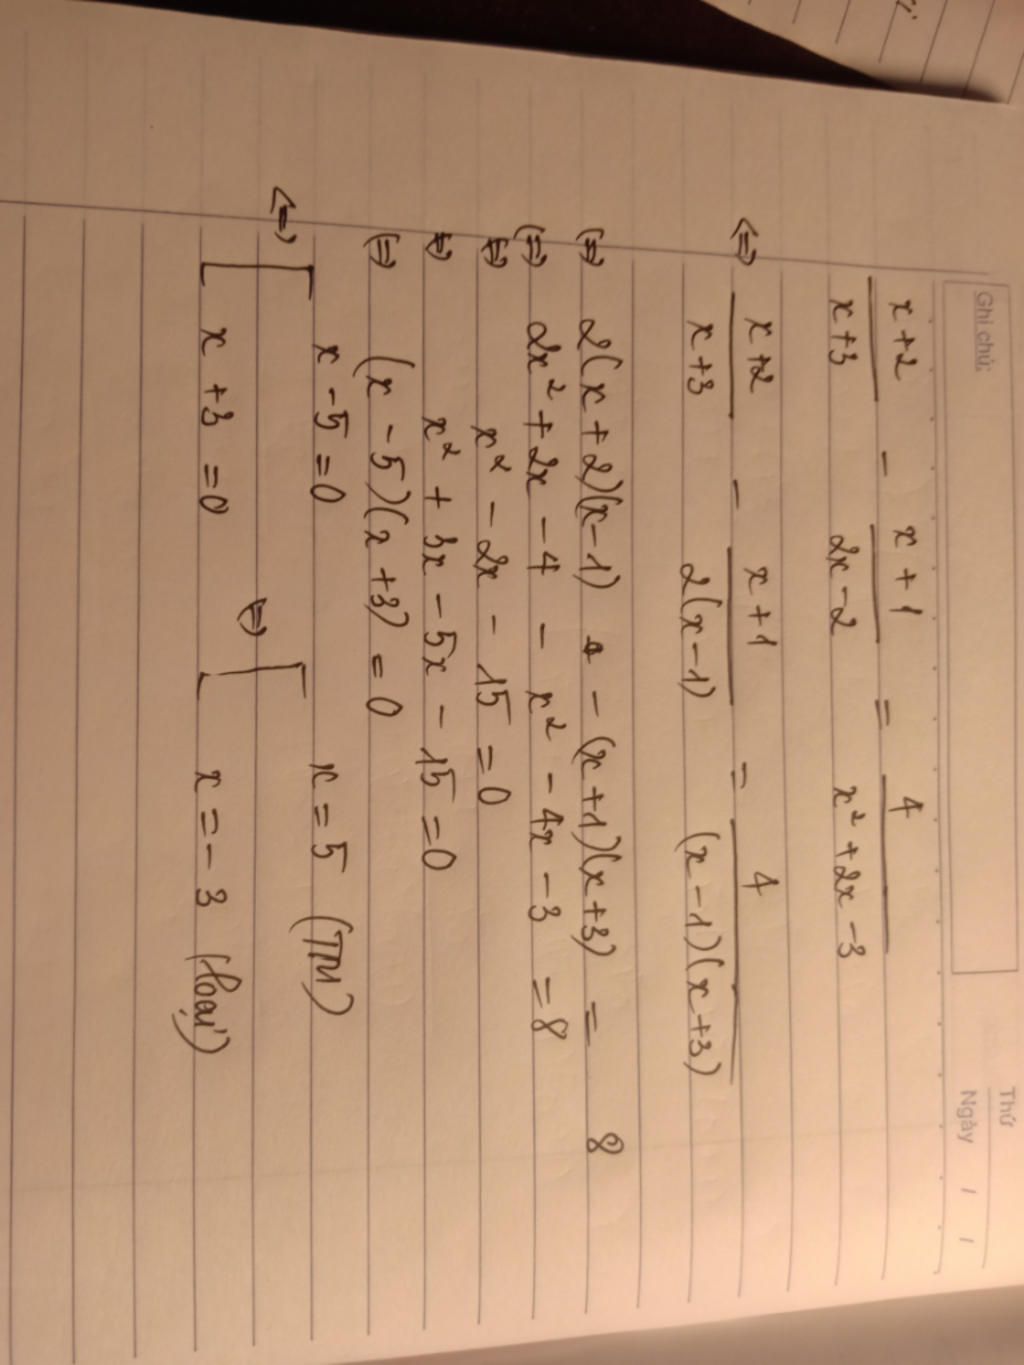 Thứ
Ngày / /
Ghi chú:
x+2/x+3 - x+1/2x-2 = 4/x²+2x-3
<=> x+2/x+3 - x+1/2(x-1) = 4/(x-1)(x+3)
<=> 2(x+2)(x-1) - (x+1)(x+3) = 8
<=> 2x²+2x-4 - x²-4x-3 = 8
<=> x²-2x-15=0
<=> x²+3x-5x-15=0
<=> (x-5)(x+3)=0
<=> [ x-5=0 <=> [ x=5 (TM)
x+3=0 x=-3 (loại)